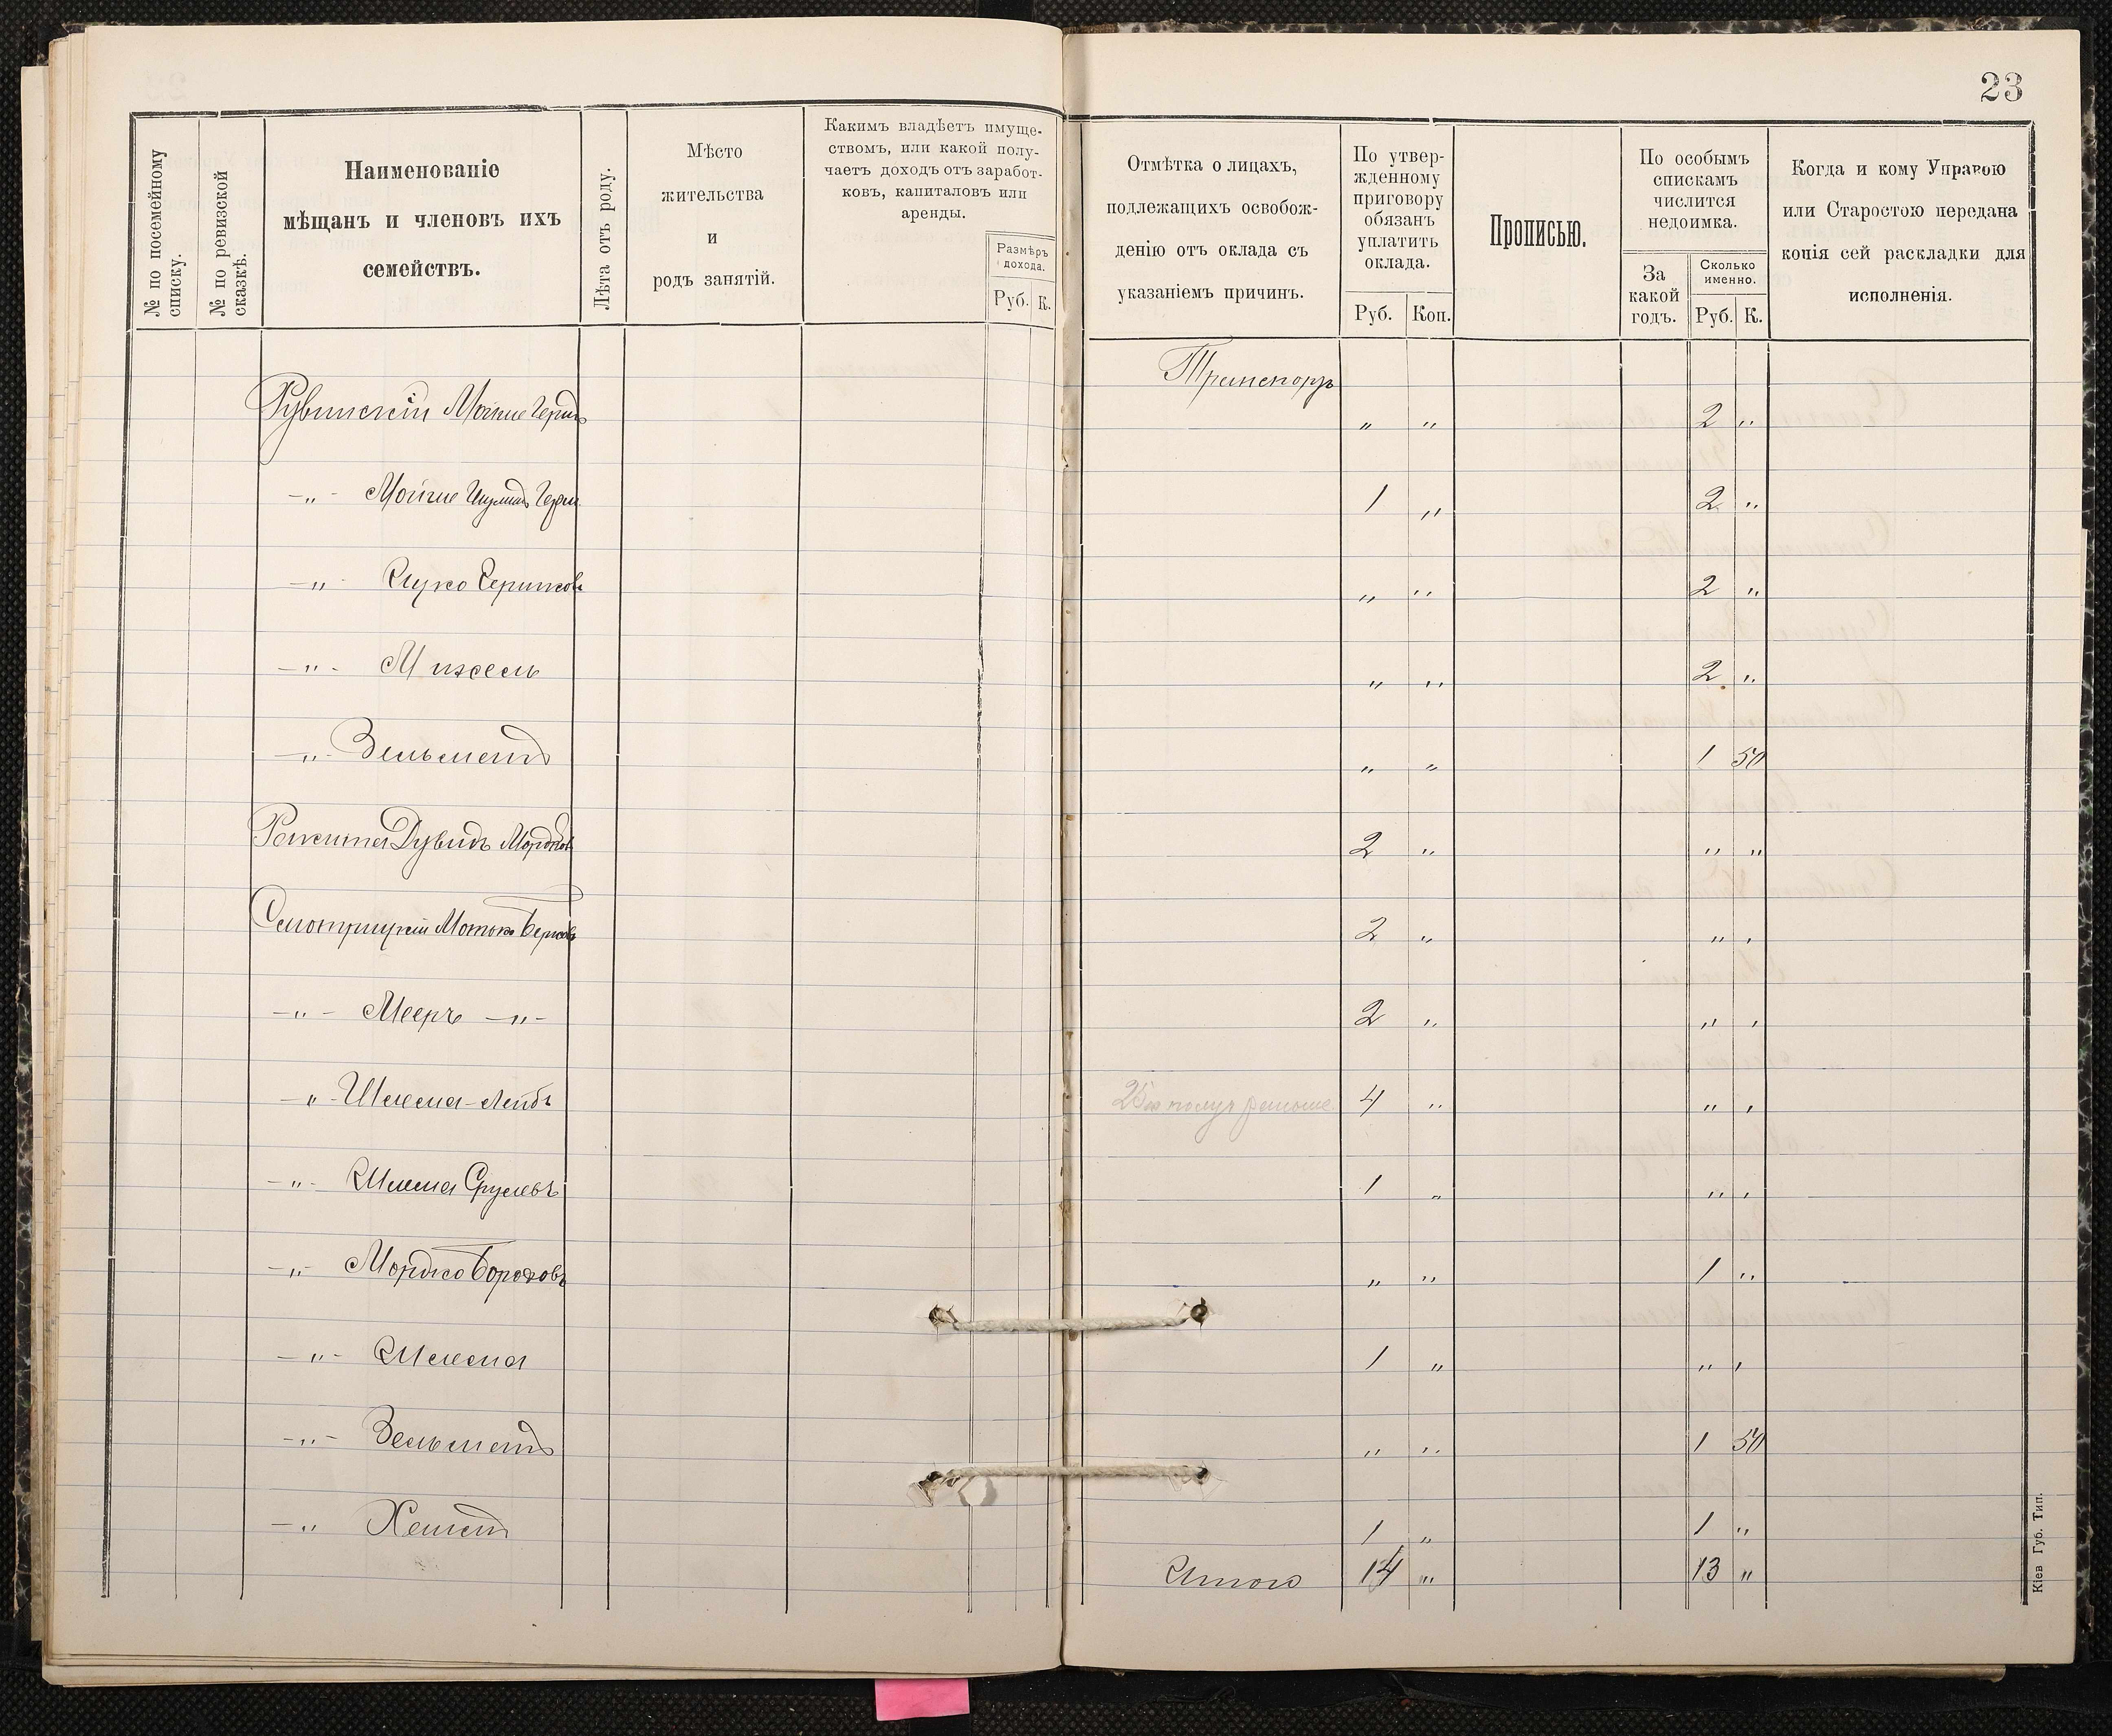 23
№ по посемейному
списку.
№ по ревизской
сказкѣ.
Наименованіе
мѣщанъ и членовъ ихъ
семействъ.
Лѣта отъ роду.
Мѣсто
жительства
и
родъ занятій.
Какимъ владѣетъ имуще-
ствомъ, или какой полу-
чаетъ доходъ отъ заработ-
ковъ, капиталовъ или
аренды.
Размѣръ
дохода.
Руб. К.
Отмѣтка о лицахъ,
подлежащихъ освобож-
денію отъ оклада съ
указаніемъ причинъ.
По утвер-
жденному
приговору
обязанъ
уплатить
оклада.
Руб. Коп.
Прописью.
По особымъ
спискамъ
числится
недоимка.
За
какой
годъ.
Сколько
именно.
Руб. К.
Когда и кому Управою
или Старостою передана
копія сей раскладки для
исполненія.
Транспортъ
Рувинскій Мойше " " 2 "
-"- Мойше 1 " 2 "
-"- Ицко " " 2 "
-"- Михель " " 2 "
-"- Зельманъ " " 1 50
Дувидъ Мордков 2 " " "
Смотрицкій Мотько Берковъ 2 " " "
-"- Мееръ -"- 2 " " "
-"- Шлема-Лейбъ 4 " " "
-"- Шлема Срулевъ 1 " " "
-"- Мордко Боруховъ " " 1 "
-"- Шлема 1 " " "
-"- Зельманъ " " 1 50
-" 1 " 1 "
Итого 14 " 13 "
Кіев Губ. Тип.